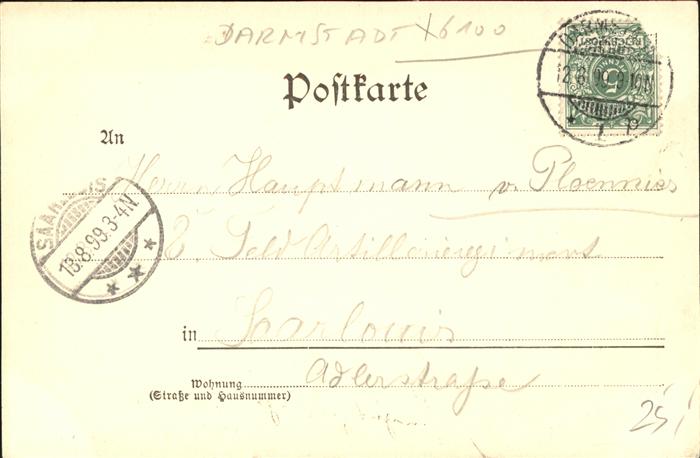 DARMSTADT X6100
Postkarte
5
12.8.99.9-10N
An
Herrn Hauptmann v. Ploennies
2. Feld Artillerieregiment
SAARLOUIS
13.8.99.3-4N
in Saarlouis
Adlerstraße
Wohnung
(Straße und Hausnummer)
25,